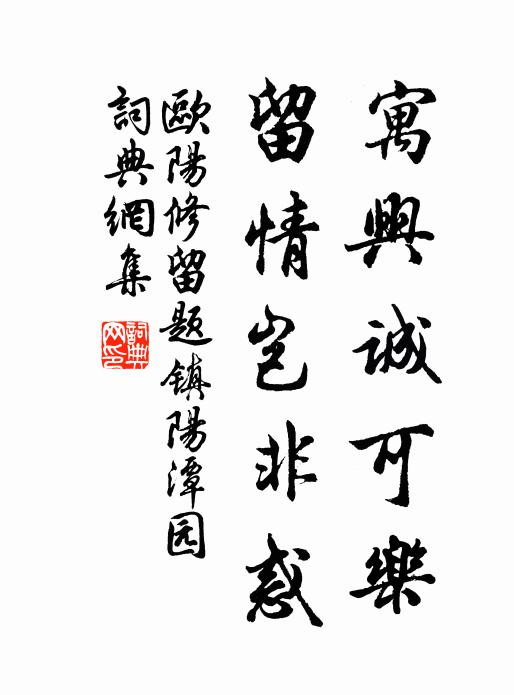 寓興誠可樂
留情豈非惑
歐陽修留題镇陽潭园
詞典網集
詞典
网印